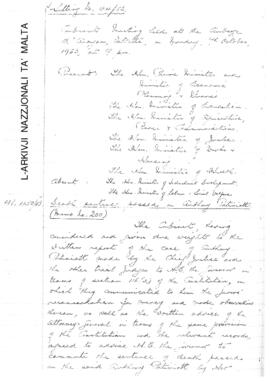 Sitting No. 
Cabinet Meeting held at the Auberge
d'Aragon, Valletta, on Monday, 7th October,
1963, at 9 a.m.
Present: The Hon. Prime Minister and
Minister of Economic
Planning & Finance
The Hon. Minister of Education
The Hon. Minister of Agriculture,
Power & Communications
The Hon. Minister of Justice
The Hon. Minister of Works &
Housing
The Hon. Minister of Health
Absent: The Hon. Minister of Industrial Development
The Hon. Minister of Labour
L-ARKIVJI NAZZJONALI TA' MALTA
Death sentence passed on Anthony
(Memo No. 200)
The Cabinet, having
considered and given due weight to the
written report of the case of Anthony
made by the Chief Justice and
the other two Judges to H.E. the Governor in
terms of section of the Constitution, in
which they communicated to him the Jurors'
recommendation for mercy and made observations
thereon, as well as the written advice of the
Attorney-General in terms of the same provision
of the Constitution and the relevant records,
agreed to advise H.E. the Governor to
commute the sentence of death passed
on the said Anthony by Her